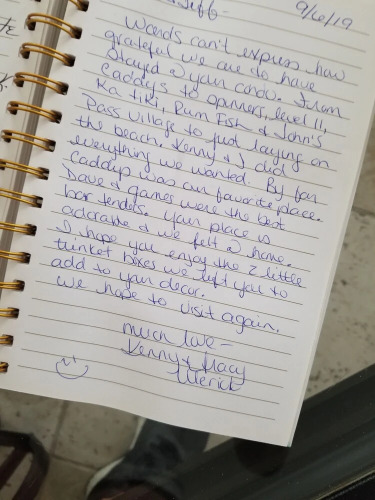 Jeff-
9/6/19
Words can't express how
grateful we are to have
stayed @ your condo. From
Caddy's to Spinners, level 11,
Ka Tiki, Rum Fish & John's
Pass Village to just laying on
the beach. Kenny & I did
everything we wanted. By far
Caddys was our favorite place.
Dave & James were the best
bar tenders. Your place is
adorable & we felt @ home.
I hope you enjoy the 2 little
trinket boxes we left you to
add to your decor.
We hope to visit again.
Much love-
Kenny & Tracy